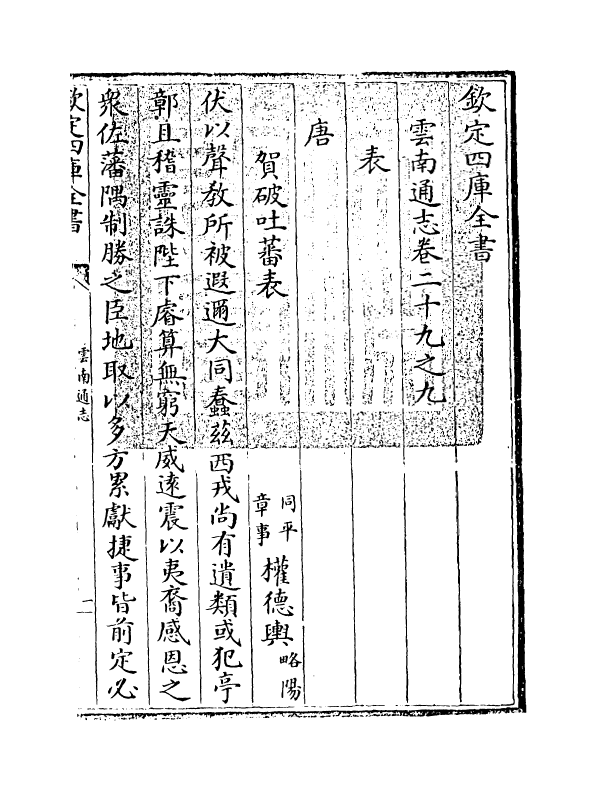 欽定四庫全書
雲南通志卷二十九之九
表
唐
賀破吐蕃表 同平章事 權德輿 略陽
伏以聲教所被遐邇大同蠢玆西戎尚有遺類或犯亭
鄣且稽靈誅陛下睿算無窮天威遠震以夷裔感恩之
衆佐藩隅制勝之臣地取以多方累獻捷事皆前定必
欽定四庫全書
雲南通志
一